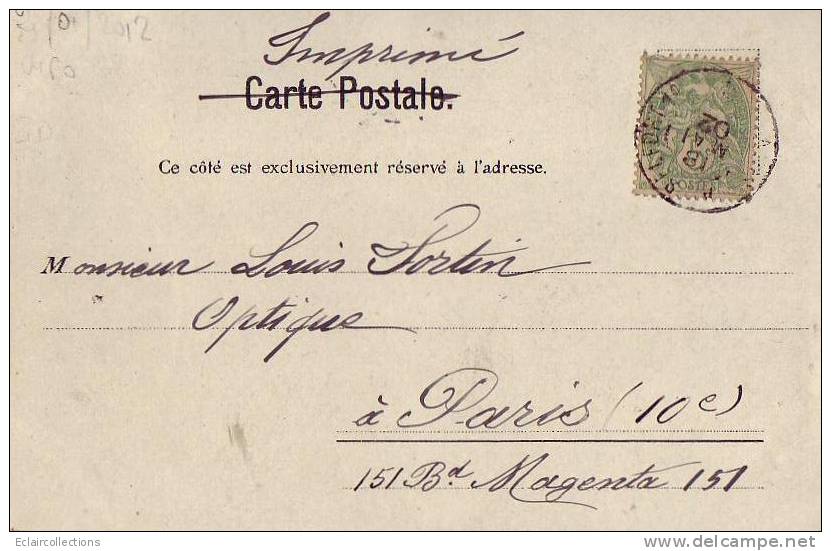 2012
Imprimé
Carte Postale.
Ce côté est exclusivement réservé à l'adresse.
Monsieur Louis Fortin
Optique
à Paris (10e)
151 Bd. Magenta 151
Eclaircollections
www.delcampe.net